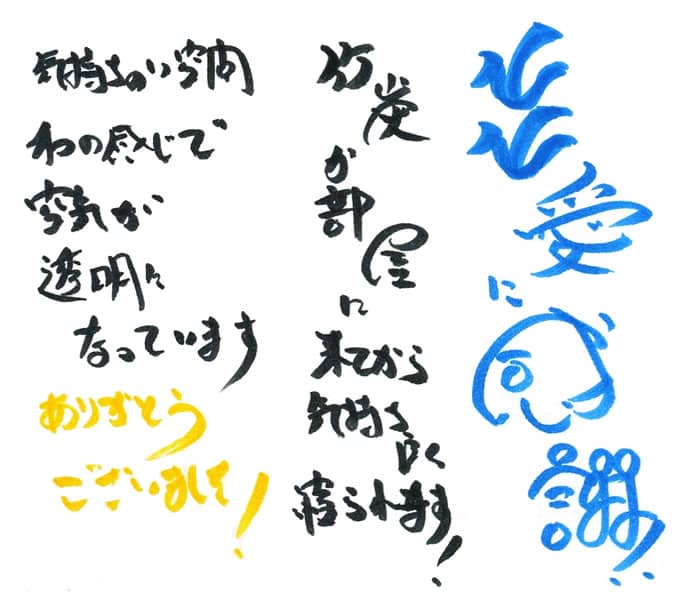 愛に感謝!!
竹炭が部屋に
来てから
気持ち良く
寝られます!
気持ちのいい空間
わの感じで
空気が
透明に
なっています
ありがとう
ございました!